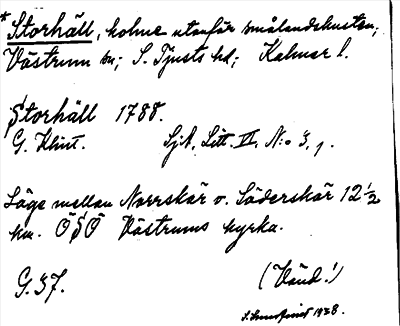 * Storhäll, holme utanför smålandskusten,
Västrum sn; S. Tjusts hd; Kalmar l.
Storhäll 1788.
G. Klint. SjA, Litt. VI, N:o 3, 1.
Läge mellan Norrskär o. Söderskär 12 1/2
km. ÖSÖ Västrums kyrka.
G. 37. (Vänd!)
1938.